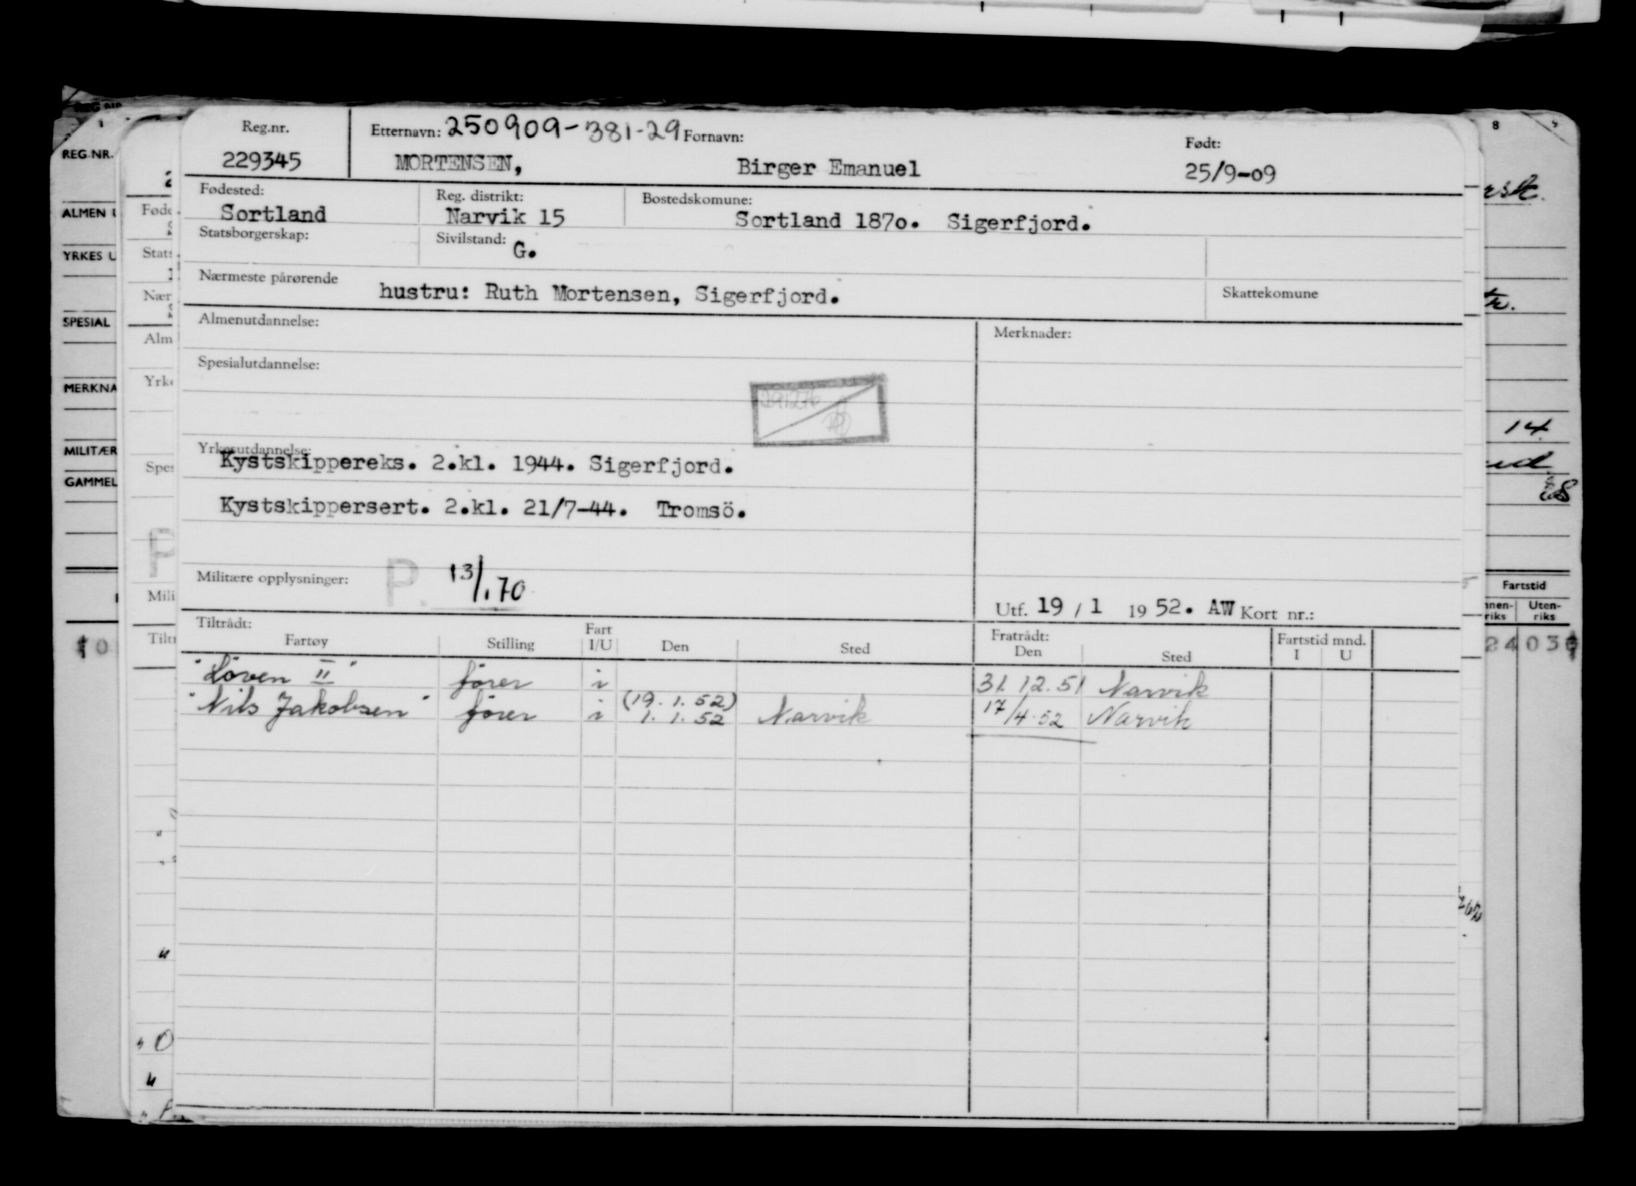 Reg.nr. Etternavn: 250909-381-29 Fornavn: Født:
229345 MORTENSEN, Birger Emanuel 25/9-09
Fødested: Reg. distrikt: Bostedskomune:
Sortland Narvik 15 Sortland 1870. Sigerfjord.
Statsborgerskap: Sivilstand: G.
Nærmeste pårørende hustru: Ruth Mortensen, Sigerfjord. Skattekomune
Almenutdannelse: Merknader:
Spesialutdannelse:
Yrkesutdannelse:
Kystskippereks. 2.kl. 1944. Sigerfjord.
Kystskippersert. 2.kl. 21/7-44. Tromsö.
Militære opplysninger: P. 13/1.70
Utf. 19 / 1 19 52. AW Kort nr.:
Tiltrådt: Fratrådt: Fartstid mnd.
Fartøy Stilling Fart I/U Den Sted Den Sted I U
"Løven II" fører i 31.12.51 Narvik
"Nils Jakobsen" fører i (19.1.52) 1.1.52 Narvik 17/4.52 Narvik
REG NR.
ALMEN U
YRKES U
SPESIAL
MERKNA
MILITÆR
GAMMEL
Fartstid
Uten-
riks
24 03
14